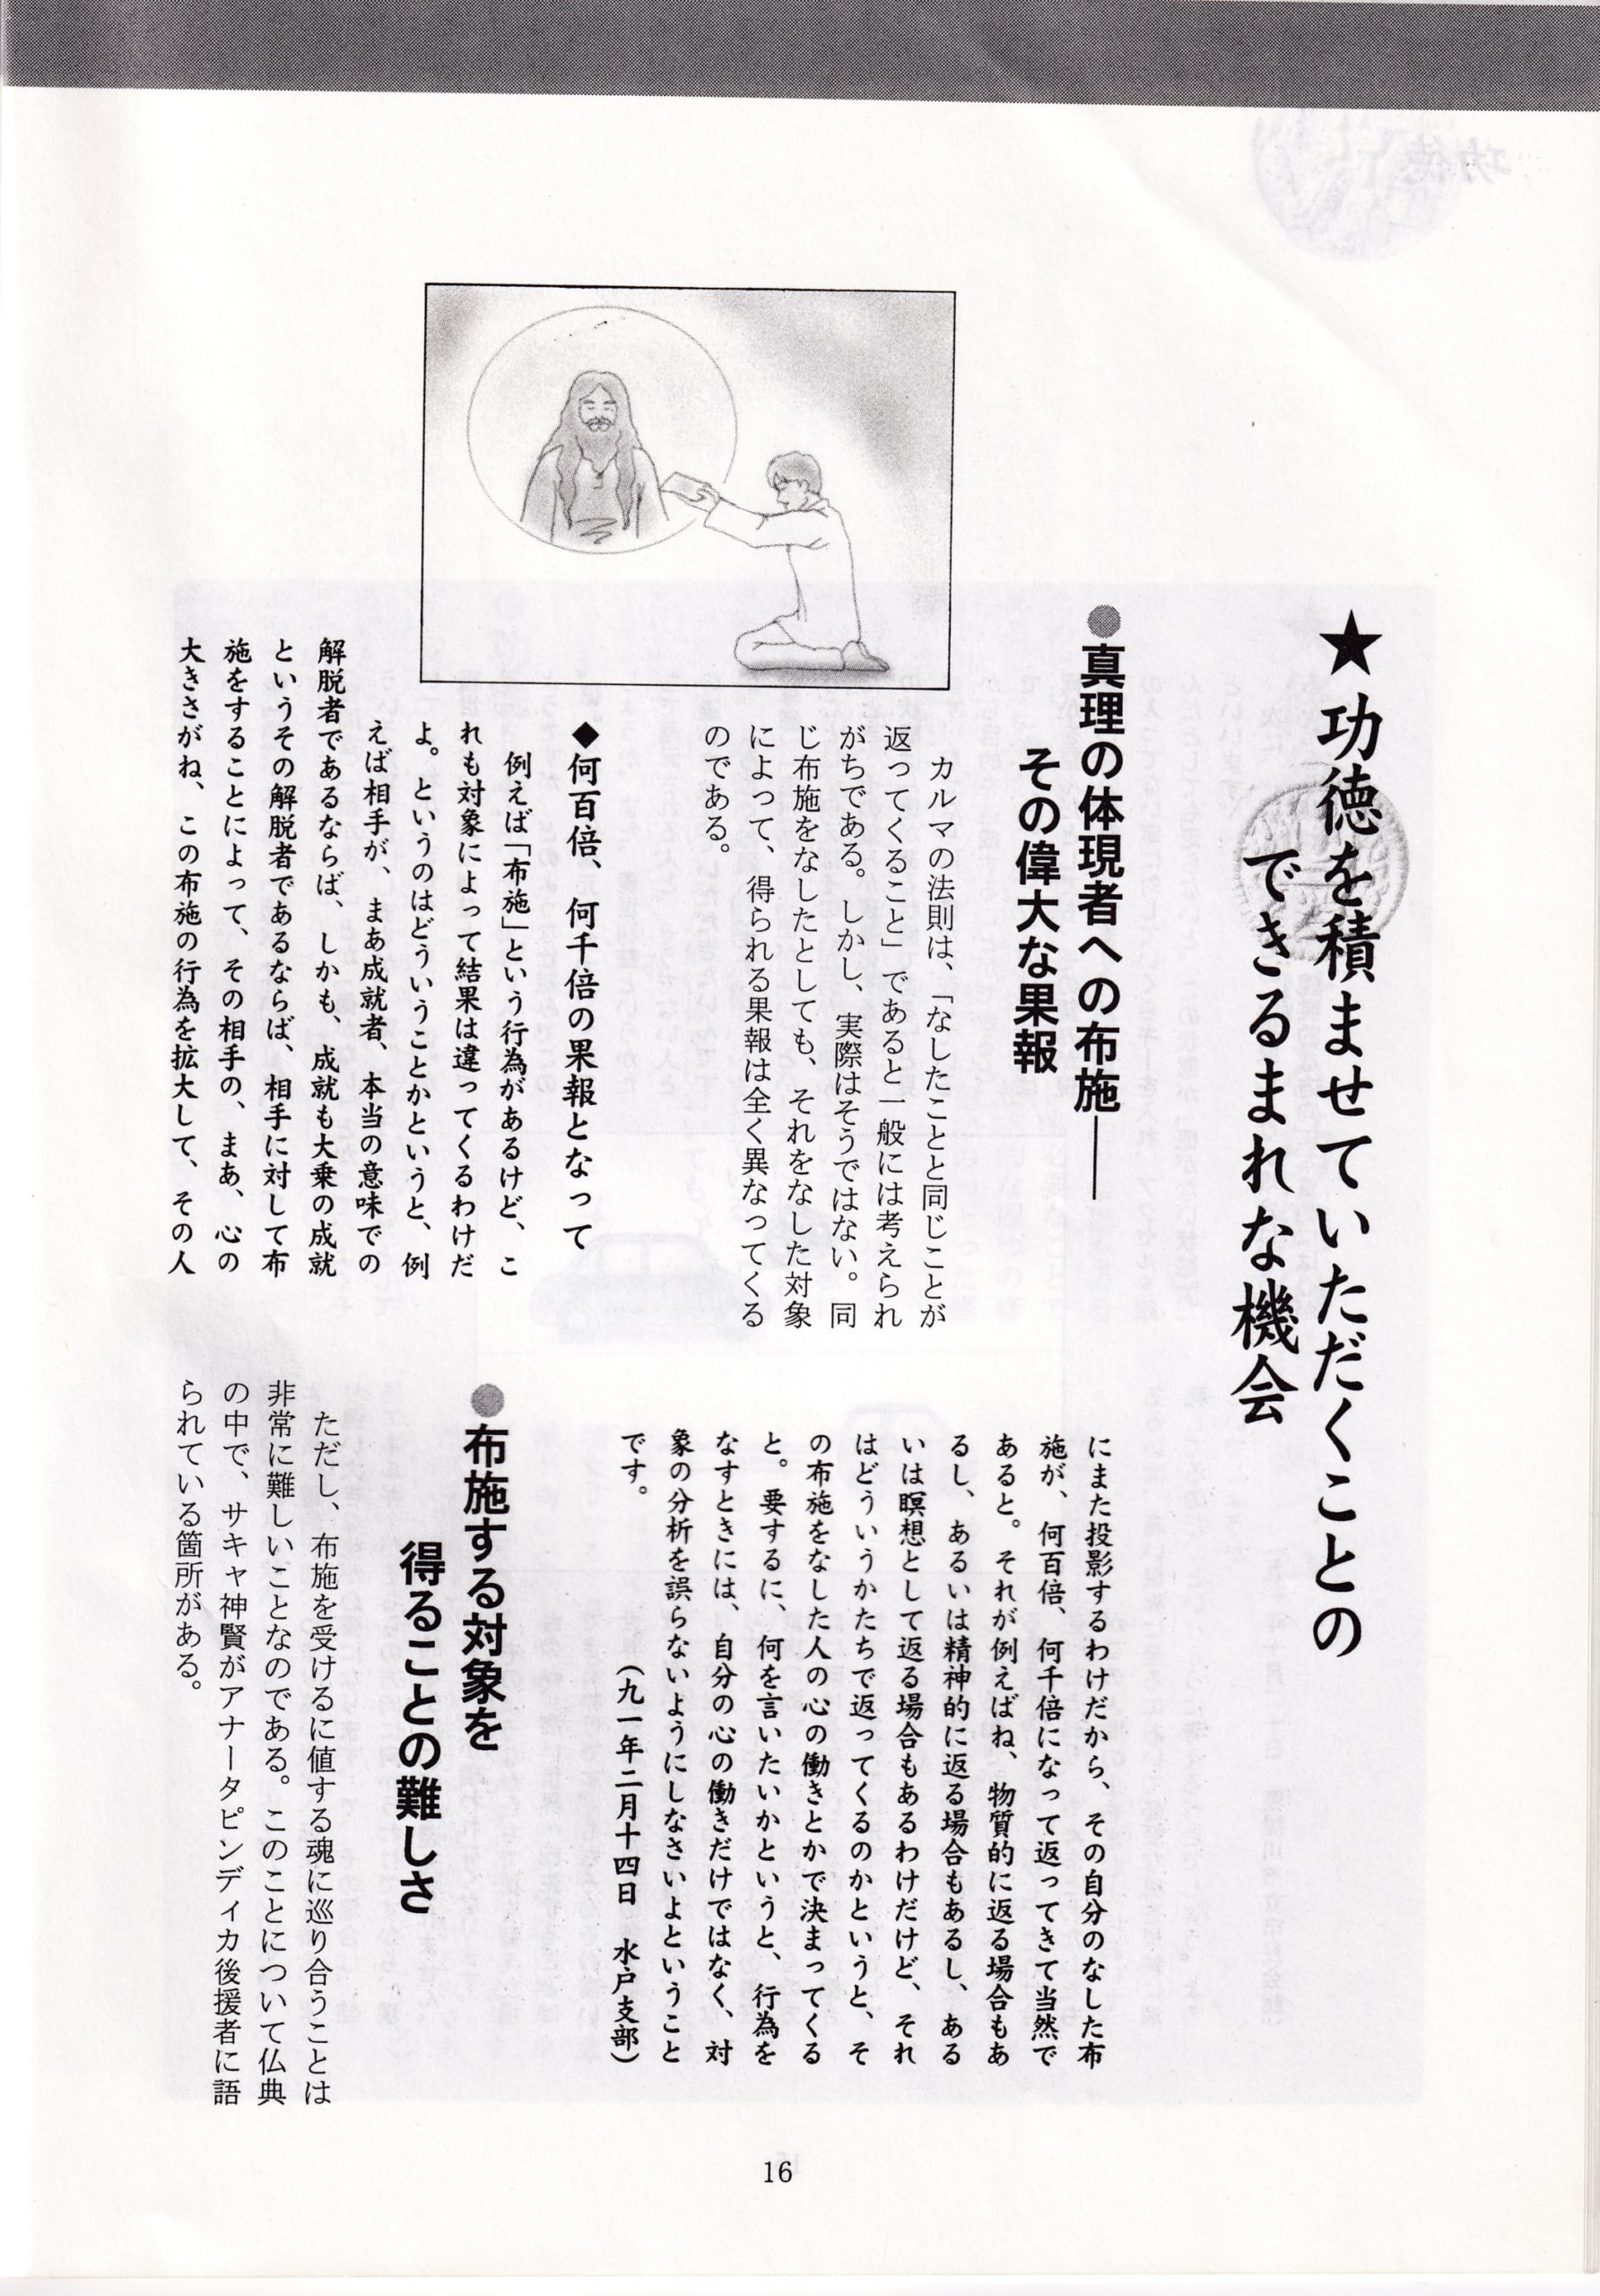 ★功徳を積ませていただくことの
できるまれな機会
●真理の体現者への布施――
その偉大な果報
カルマの法則は、「なしたことと同じことが
返ってくること」であると一般には考えられ
がちである。しかし、実際はそうではない。同
じ布施をなしたとしても、それをなした対象
によって、得られる果報は全く異なってくる
のである。
◆何百倍、何千倍の果報となって
例えば「布施」という行為があるけど、こ
れも対象によって結果は違ってくるわけだ
よ。というのはどういうことかというと、例
えば相手が、まあ成就者、本当の意味での
解脱者であるならば、しかも、成就も大乗の成就
というその解脱者であるならば、相手に対して布
施をすることによって、その相手の、まあ、心の
大きさがね、この布施の行為を拡大して、その人
にまた投影するわけだから、その自分のなした布
施が、何百倍、何千倍になって返ってきて当然で
あると。それが例えばね、物質的に返る場合もあ
るし、あるいは精神的に返る場合もあるし、ある
いは瞑想として返る場合もあるわけだけど、それ
はどういうかたちで返ってくるのかというと、そ
の布施をなした人の心の働きとかで決まってくる
と。要するに、何を言いたいかというと、行為を
なすときには、自分の心の働きだけではなく、対
象の分析を誤らないようにしなさいよということ
です。　　　　　（九一年二月十四日　水戸支部）
●布施する対象を
得ることの難しさ
ただし、布施を受けるに値する魂に巡り合うことは
非常に難しいことなのである。このことについて仏典
の中で、サキャ神賢がアナータピンディカ後援者に語
られている箇所がある。
16